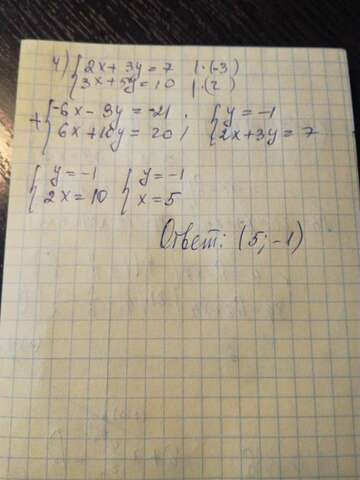 4) { 2x + 3y = 7 | · (-3)
{ 3x + 5y = 10 | · (2)
+ { -6x - 9y = -21 ; { y = -1
{ 6x + 10y = 20 ; { 2x + 3y = 7
{ y = -1 { y = -1
{ 2x = 10 { x = 5
Ответ: (5; -1)